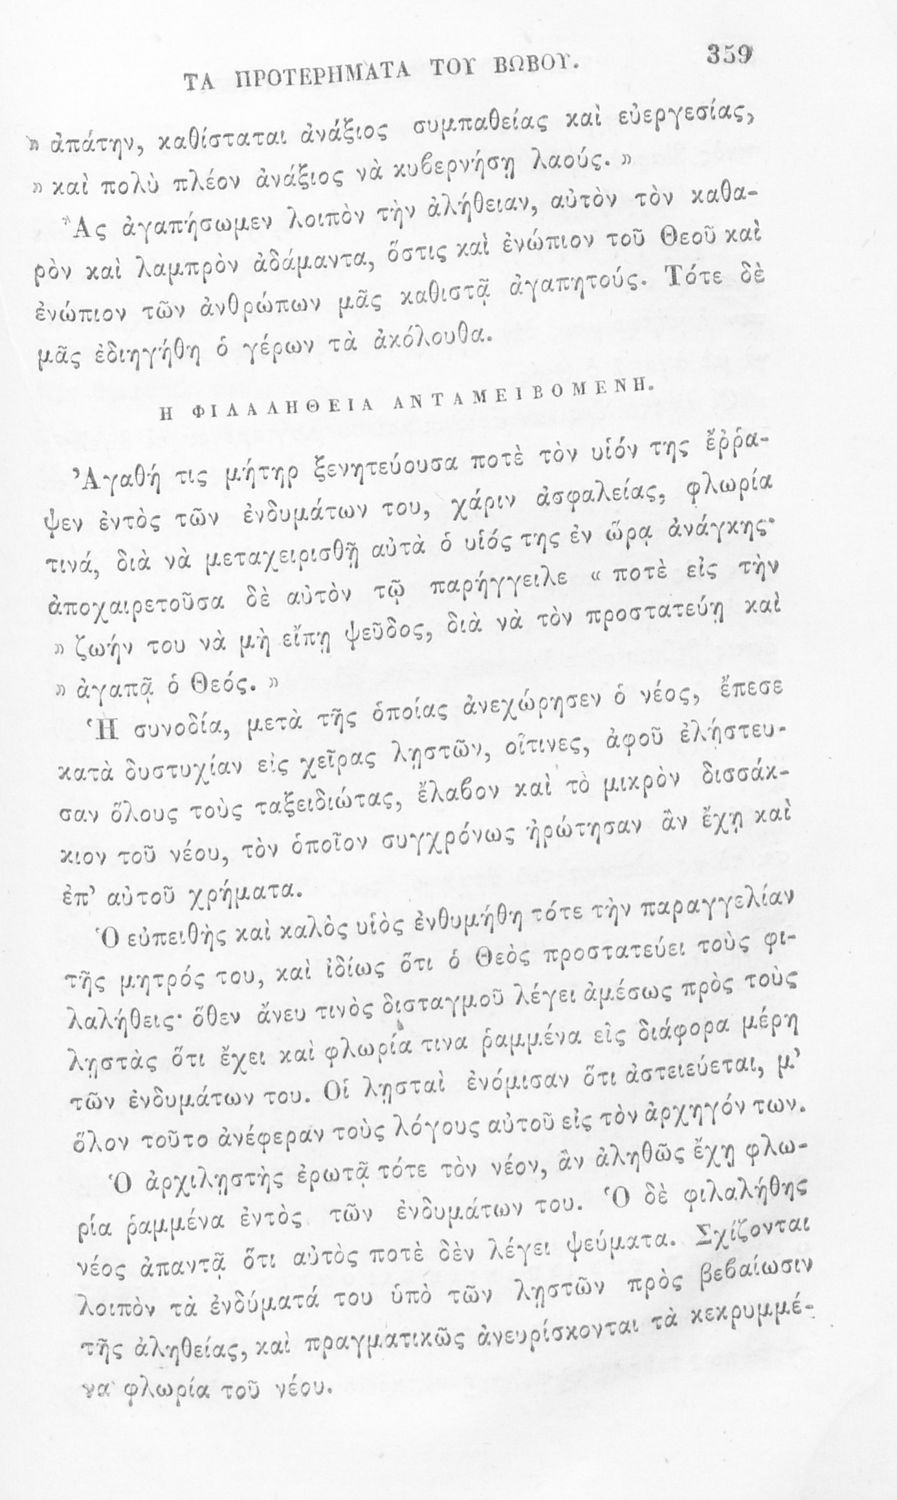 ΤΑ ΠΡΟΤΕΡΗΜΑΤΑ ΤΟΥ ΒΩΒΟΥ. 359
» ἀπάτην, καθίσταται ἀνάξιος συμπαθείας καὶ εὐεργεσίας,
» καὶ πολὺ πλέον ἀνάξιος νὰ κυβερνήσῃ λαούς. »
Ἂς ἀγαπήσωμεν λοιπὸν τὴν ἀλήθειαν, αὐτὸν τὸν καθα-
ρὸν καὶ λαμπρὸν ἀδάμαντα, ὅστις καὶ ἐνώπιον τοῦ Θεοῦ καὶ
ἐνώπιον τῶν ἀνθρώπων μᾶς καθιστᾷ ἀγαπητούς. Τότε δὲ
μᾶς ἐδιηγήθη ὁ γέρων τὰ ἀκόλουθα.
Η ΦΙΛΑΛΗΘΕΙΑ ΑΝΤΑΜΕΙΒΟΜΕΝΗ.
Ἀγαθή τις μήτηρ ξενητεύουσα ποτὲ τὸν υἱόν της ἔῤῥα-
ψεν ἐντὸς τῶν ἐνδυμάτων του, χάριν ἀσφαλείας, φλωρία
τινά, διὰ νὰ μεταχειρισθῇ αὐτὰ ὁ υἱός της ἐν ὥρᾳ ἀνάγκης·
ἀποχαιρετοῦσα δὲ αὐτὸν τῷ παρήγγειλε « ποτὲ εἰς τὴν
» ζωήν του νὰ μὴ εἴπῃ ψεῦδος, διὰ νὰ τὸν προστατεύῃ καὶ
» ἀγαπᾷ ὁ Θεός. »
Ἡ συνοδία, μετὰ τῆς ὁποίας ἀνεχώρησεν ὁ νέος, ἔπεσε
κατὰ δυστυχίαν εἰς χεῖρας λῃστῶν, οἵτινες, ἀφοῦ ἐλήστευ-
σαν ὅλους τοὺς ταξειδιώτας, ἔλαβον καὶ τὸ μικρὸν δισσάκ-
κιον τοῦ νέου, τὸν ὁποῖον συγχρόνως ἠρώτησαν ἂν ἔχῃ καὶ
ἐπ’ αὐτοῦ χρήματα.
Ὁ εὐπειθὴς καὶ καλὸς υἱὸς ἐνθυμήθη τότε τὴν παραγγελίαν
τῆς μητρός του, καὶ ἰδίως ὅτι ὁ Θεὸς προστατεύει τοὺς φι-
λαλήθεις· ὅθεν ἄνευ τινὸς δισταγμοῦ λέγει ἀμέσως πρὸς τοὺς
λῃστὰς ὅτι ἔχει καὶ φλωρία τινα ῥαμμένα εἰς διάφορα μέρη
τῶν ἐνδυμάτων του. Οἱ λῃσταὶ ἐνόμισαν ὅτι ἀστειεύεται, μ’
ὅλον τοῦτο ἀνέφεραν τοὺς λόγους αὐτοῦ εἰς τὸν ἀρχηγόν των.
Ὁ ἀρχιλῃστὴς ἐρωτᾷ τότε τὸν νέον, ἂν ἀληθῶς ἔχῃ φλω-
ρία ῥαμμένα ἐντὸς τῶν ἐνδυμάτων του. Ὁ δὲ φιλαλήθης
νέος ἀπαντᾷ ὅτι αὐτὸς ποτὲ δὲν λέγει ψεύματα. Σχίζονται
λοιπὸν τὰ ἐνδύματά του ὑπὸ τῶν λῃστῶν πρὸς βεβαίωσιν
τῆς ἀληθείας, καὶ πραγματικῶς ἀνευρίσκονται τὰ κεκρυμμέ-
να φλωρία τοῦ νέου.